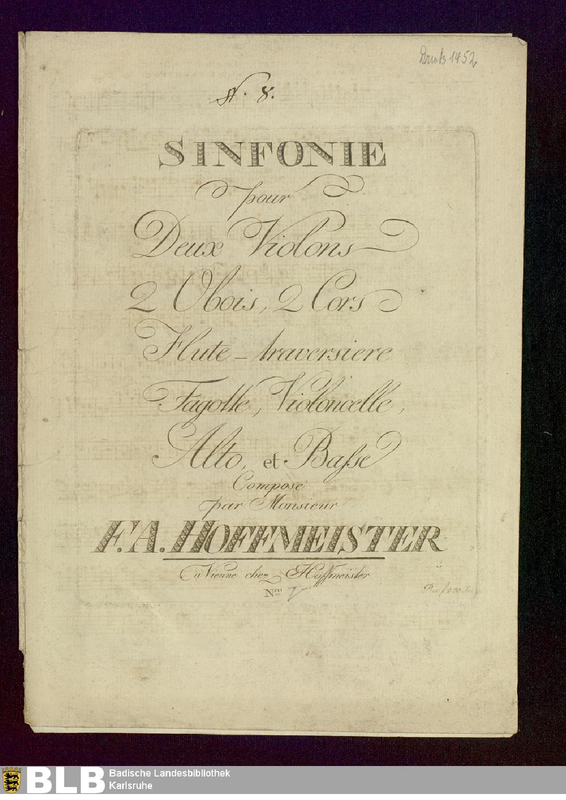 Druck 1452
N. 8.
SINFONIE
pour
Deux Violons
2 Obois, 2 Cors
Flute-traversiere
Fagotte, Violoncelle,
Alto, et Baſse
Compose
par Monsieur
F. A. HOFFMEISTER
a Vienne chez Hoffmeister
Nro
BLB
Badische Landesbibliothek
Karlsruhe